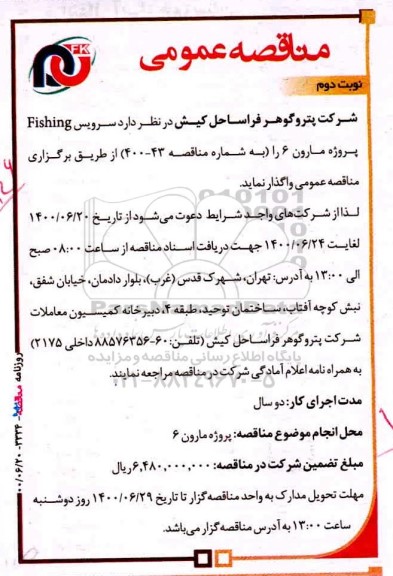 مناقصه عمومی
FK
نوبت دوم
شرکت پتروگوهر فراساحل کیش در نظر دارد سرویس Fishing
پروژه مارون ۶ را (به شماره مناقصه ۴۳-۴۰۰) از طریق برگزاری
مناقصه عمومی واگذار نماید.
لذا از شرکت‌های واجد شرایط دعوت می‌شود از تاریخ ۱۴۰۰/۰۶/۲۰
لغایت ۱۴۰۰/۰۶/۲۴ جهت دریافت اسناد مناقصه از ساعت ۰۸:۰۰ صبح
الی ۱۳:۰۰ به آدرس: تهران، شهرک قدس (غرب)، بلوار دادمان، خیابان شفق،
نبش کوچه آفتاب، ساختمان توحید، طبقه ۴، دبیرخانه کمیسیون معاملات
شرکت پتروگوهر فراساحل کیش (تلفن: ۶۰-۸۸۵۷۶۳۵۶ داخلی ۲۱۷۵)
پایگاه اطلاع رسانی مناقصه و مزایده
به همراه نامه اعلام آمادگی شرکت در مناقصه مراجعه نمایند.
۰۲۱-۸۸۳۴۹۶۷۰-۵
مدت اجرای کار: دو سال
محل انجام موضوع مناقصه: پروژه مارون ۶
مبلغ تضمین شرکت در مناقصه: ۶,۴۸۰,۰۰۰,۰۰۰ ریال
مهلت تحویل مدارک به واحد مناقصه‌گزار تا تاریخ ۱۴۰۰/۰۶/۲۹ روز دوشنبه
ساعت ۱۳:۰۰ به آدرس مناقصه‌گزار می‌باشد.
روزنامه مناقصه - ۳۳۳۴ - ۰۰/۰۶/۲۰